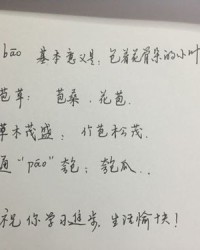 bāo 基本意义是:包着花骨朵的小叶
苞草: 苞桑、花苞
草木茂盛: 竹苞松茂
通"páo" : 匏瓜...
祝你学习进步,生活愉快!